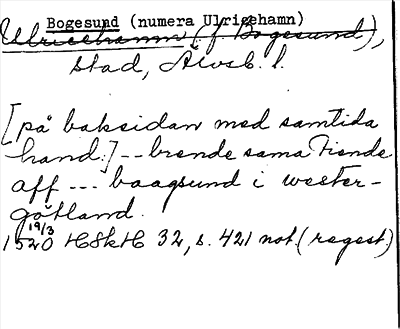 Bogesund (numera Ulricehamn)
Ulricehamn (f. Bogesund),
stad, Älvsb. l.
[på baksidan med samtida
hand:] -- brende sama tiende
aff --- baagsund i wester-
götland.
19/3
1520 HSkH 32, s. 421 not (regest)